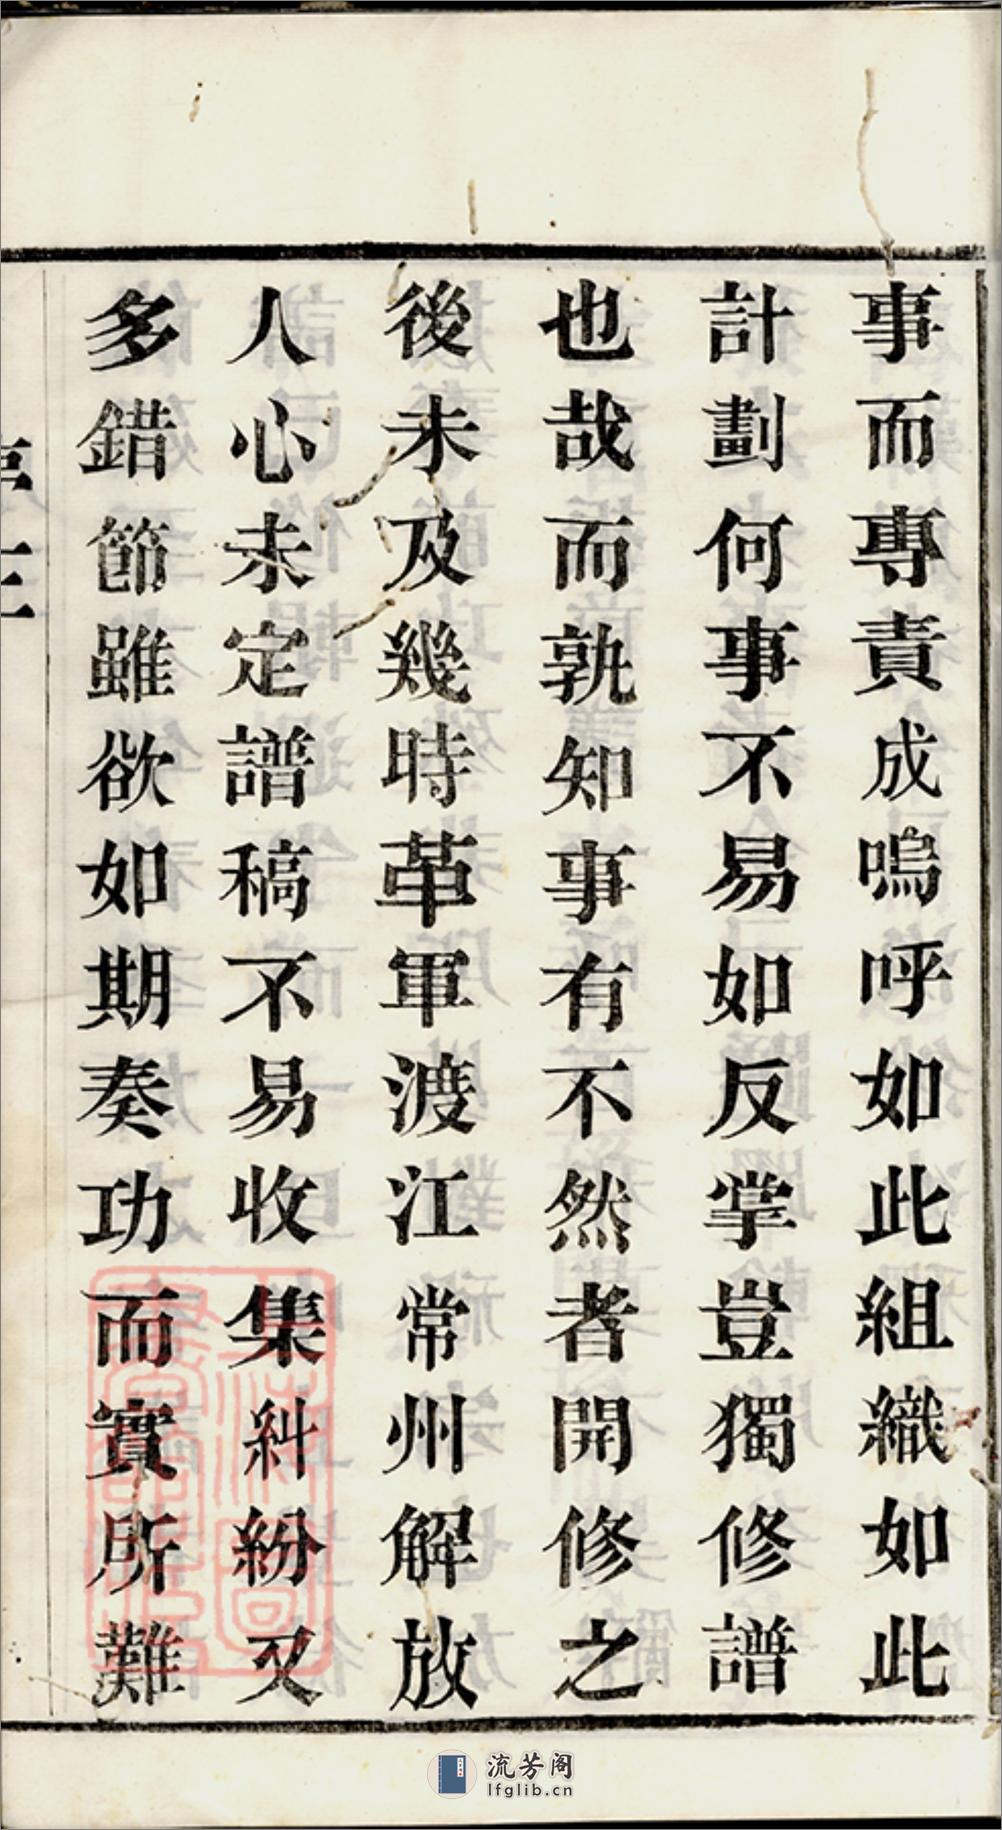 事而專責成嗚呼如此組織如此
計劃何事不易如反掌豈獨修譜
也哉而孰知事有不然者開修之
後未及幾時革軍渡江常州解放
人心未定譜稿不易收集糾紛又
多錯節雖欲如期奏功而實所難
流芳阁
lfglib.cn